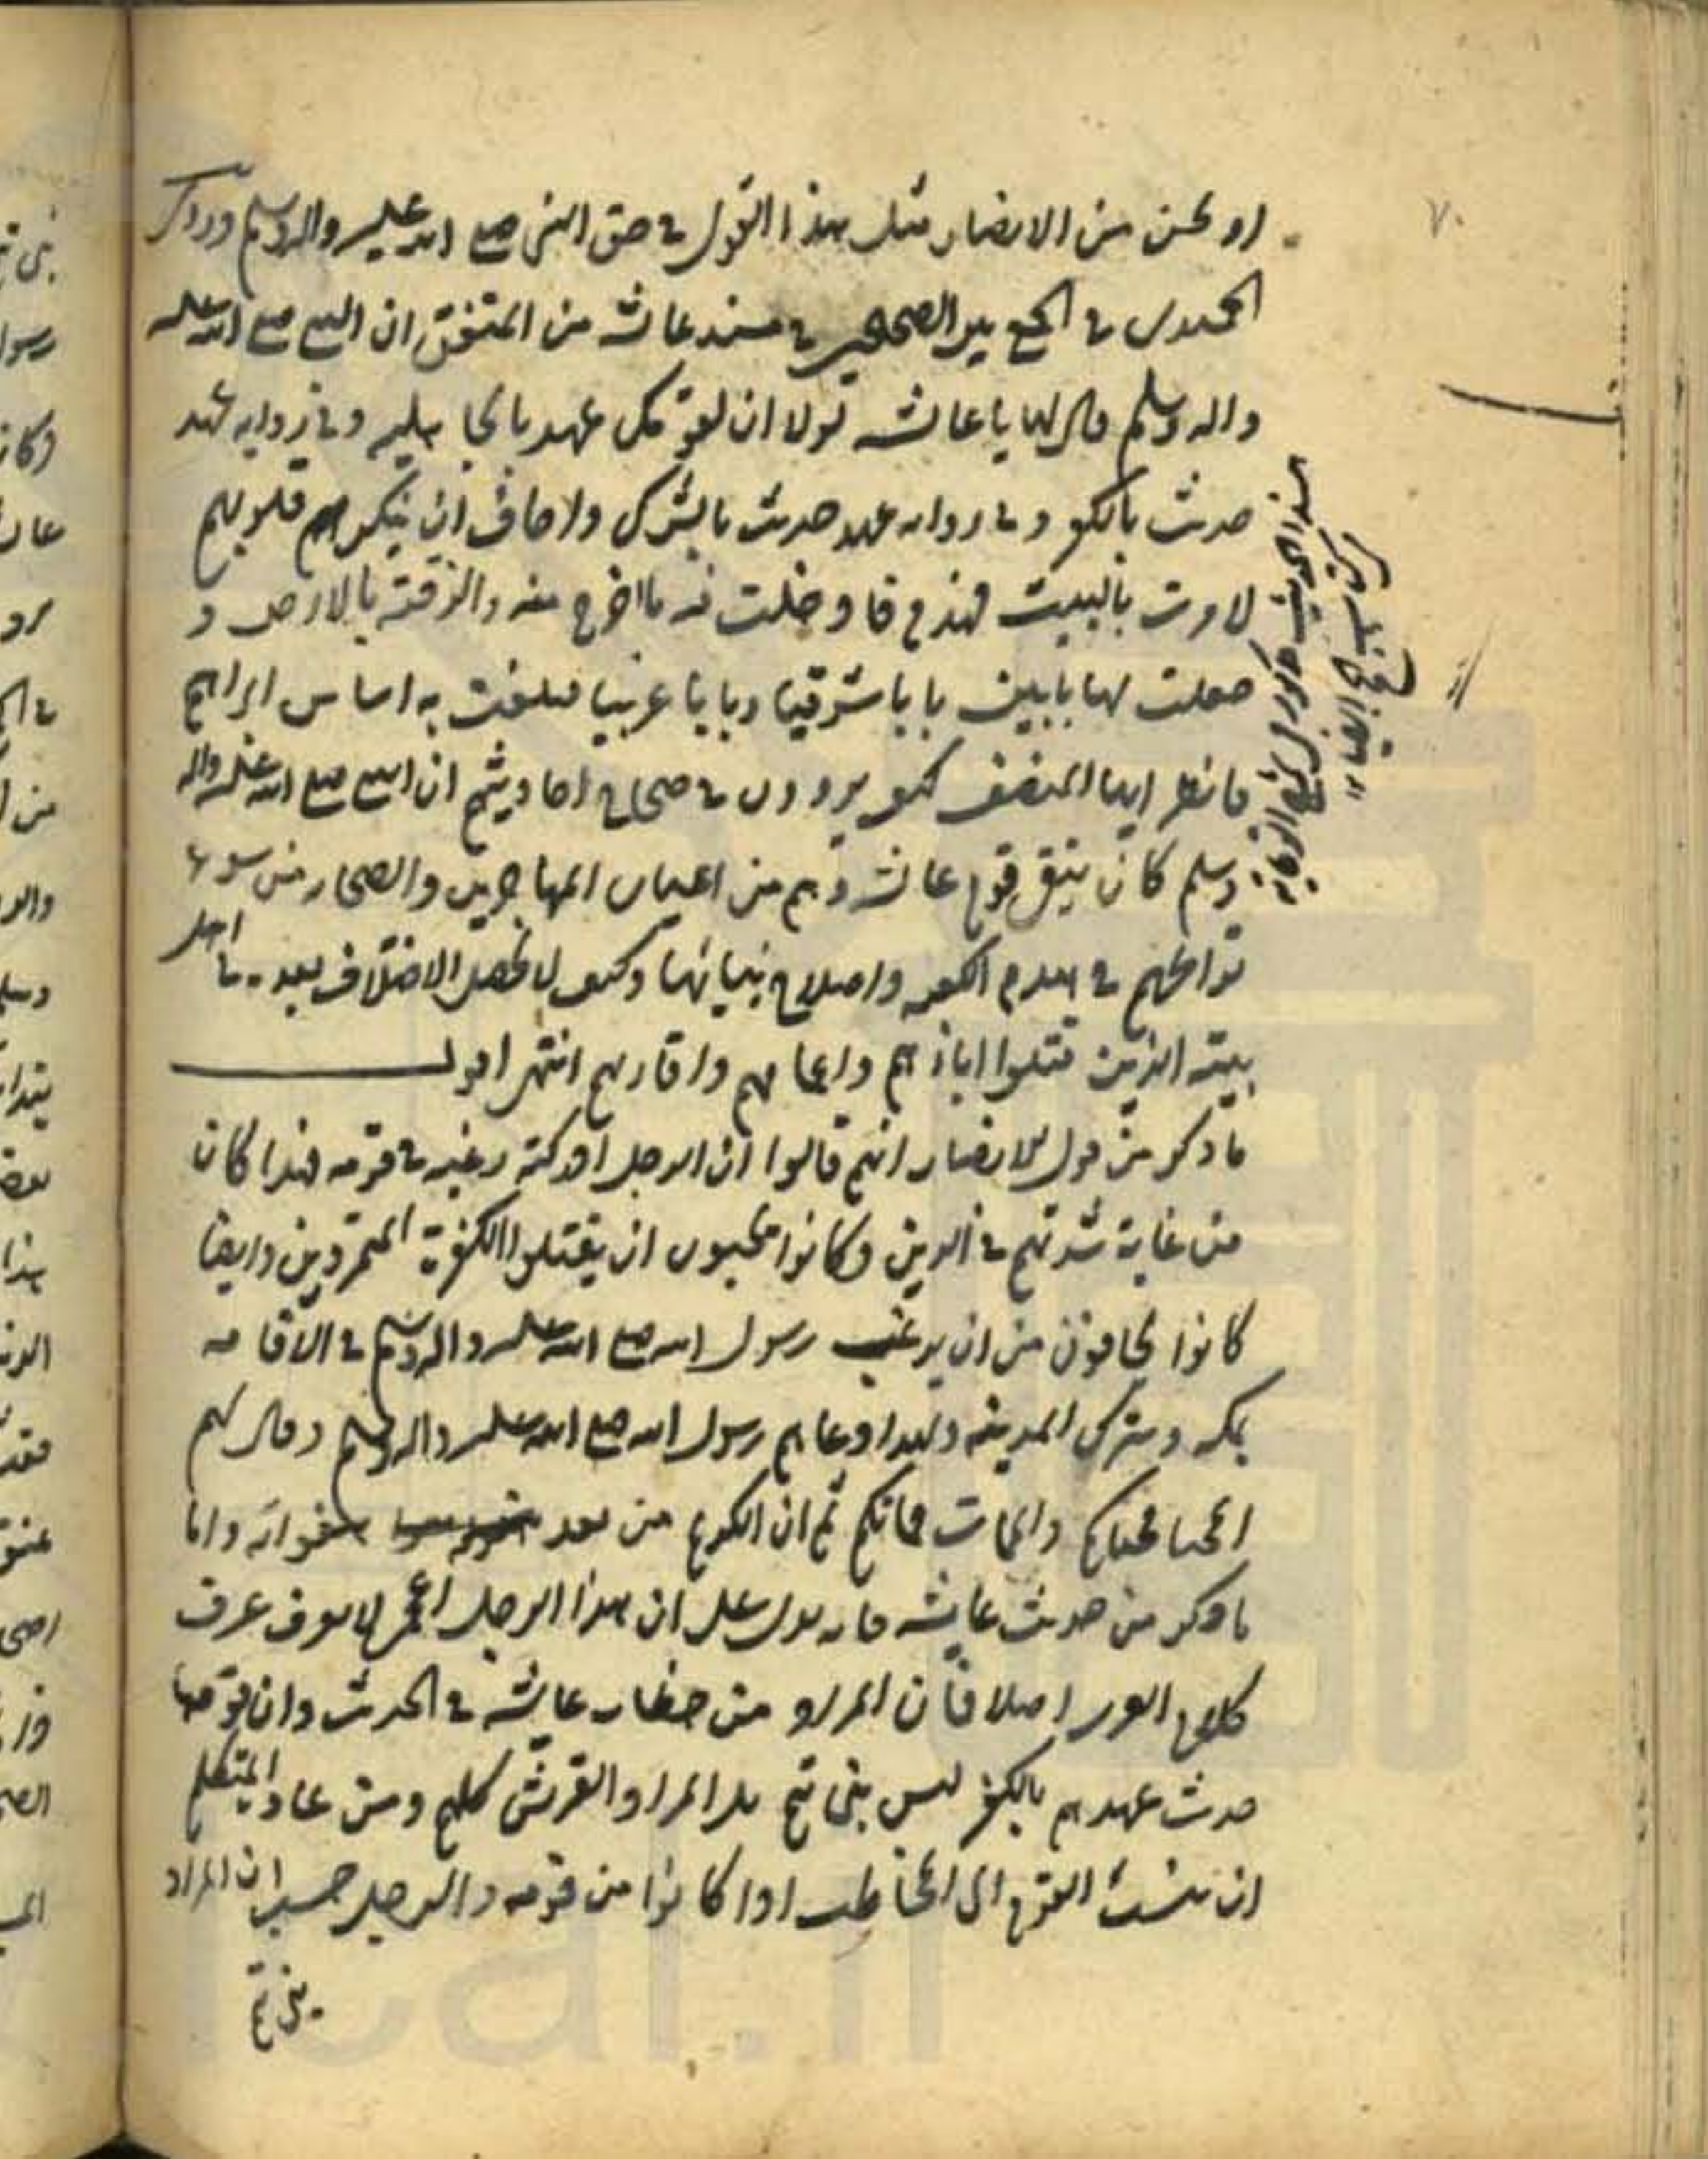 او يحسن من الانصار مثل هذا القول في حق النبي صلع الله عليه واله وسلم وذكر
الحميدي في الجمع بين الصحيحين في مسند عائشه من المتفق ان النبي صلع الله عليه
واله وسلم قال لها يا عائشه لولا ان قومك عهد بالجاهليه وفي روايه عهد
حديث بالكفر وفي روايه عهد حديث بالشرك واخاف ان ينكر قلوبهم
لامرت بالبيت فهدم فادخلت فيه ما اخرج منه والزقته بالارض و
جعلت لها بابين بابا شرقيا وبابا غربيا فبلغت به اساس ابراهيم
فانظر ايها المنصف كيف يروون في صحاح احاديثهم ان النبي صلع الله عليه واله
وسلم كان يتقي قوم عائشه وهم من اعيان المهاجرين والصحابه من
تواطئهم في هدم الكعبه واصلاح بنيانها وكيف لا يحصل الاختلاف بعده في اهل
بيته الذين قتلوا اباءهم واعمامهم واقاربهم انتهى اقول
ما ذكر من قول الانصار انهم قالوا ان الرجل ادركته رغبه في قومه فهذا كان
من غاية شدتهم في الدين وكانوا يحبون ان يقتلوا الكفرة المتمردين وايضا
كانوا يخافون من ان يرغب رسول الله صلع الله عليه واله وسلم في الاقامه
بمكه ويترك المدينه ولهذا دعاهم رسول الله صلع الله عليه واله وسلم وقال لهم
المحيا محياكم والممات مماتكم ثم ان الكلام من بعد
ما ذكر من حديث عائشه فانه يدل على ان هذا الرجل اعجمي لا يعرف عرف
كلام العرب اصلا فان المراد من خطاب عائشه في الحديث وان قومها
حديث عهدهم بالكفر ليس بني تيم بل المراد القريش كلهم ومن عاد المتكلم
ان ينسب القوم الى المخاطب اذا كانوا من قومه والرجل حسب ان المراد
بني تيم
هذا الحديث مذكور في
۷۰